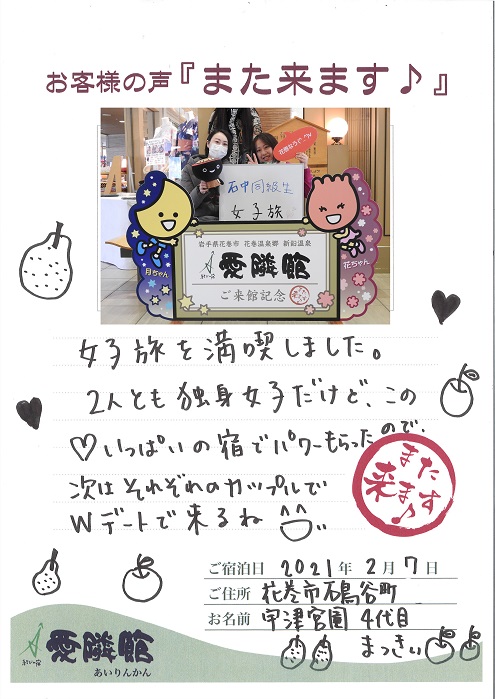 お客様の声『また来ます♪』
石中同級生
女子旅
岩手県花巻市 花巻温泉郷 新鉛温泉
愛隣館
ご来館記念
月ちゃん
花ちゃん
女子旅を満喫しました。
2人とも独身女子だけど、この
♡いっぱいの宿でパワーもらったので、
次はそれぞれのカップルで
Wデートで来るね
また
来ます♪
ご宿泊日 2021年2月7日
ご住所 花巻市石鳥谷町
お名前 宇津宮園 4代目
まつきぃ
愛隣館
あいりんかん